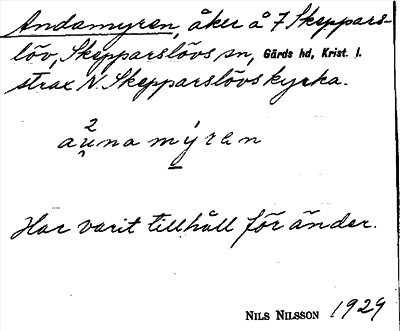 Andamyren, åker å 7 Skeppars-
löv, Skepparslövs sn, Gärds hd, Krist. l.
strax N. Skepparslövs kyrka.
2
aunamýran
Har varit tillhåll för änder.
NILS NILSSON 1929